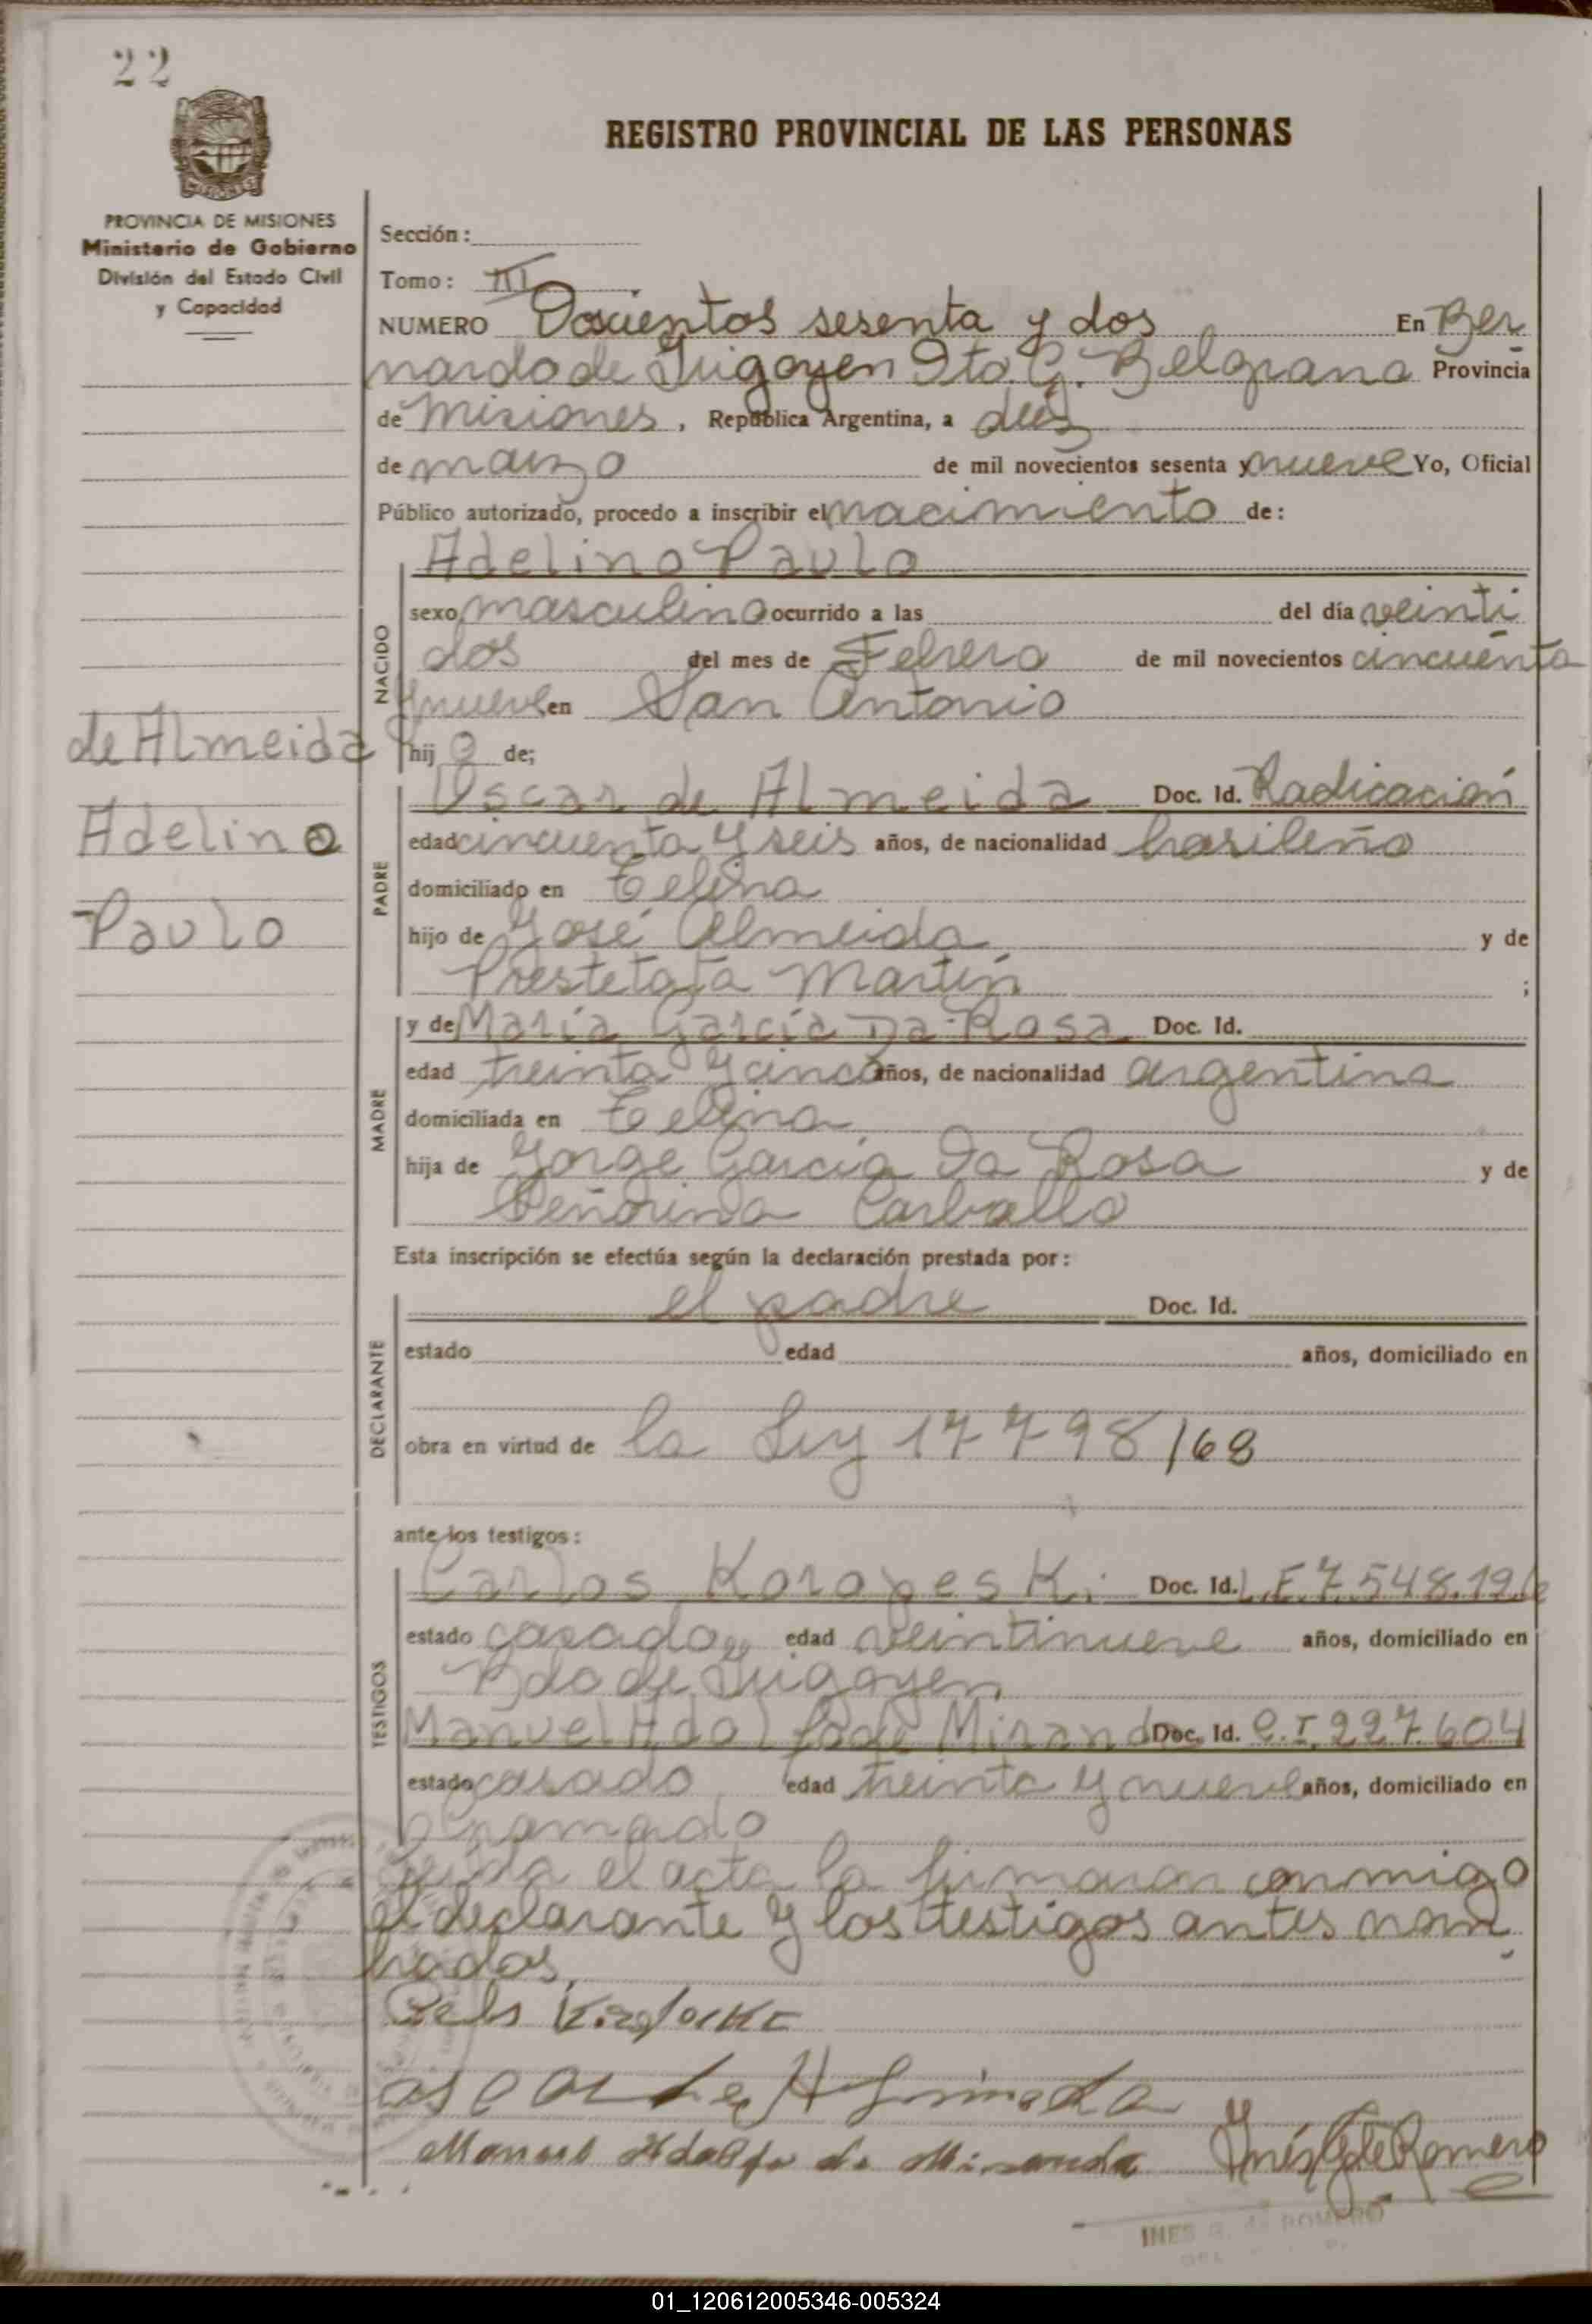 22
REGISTRO PROVINCIAL DE LAS PERSONAS
MISIONES
PROVINCIA DE MISIONES
Ministerio de Gobierno
División del Estado Civil
y Capacidad
Sección:
Tomo: III
NUMERO Doscientos sesenta y dos En Ber
nardo de Irigoyen Dto. G. Belgrano Provincia
de Misiones, República Argentina, a diez
de marzo de mil novecientos sesenta y nueve Yo, Oficial
Público autorizado, procedo a inscribir el nacimiento de:
Adelino Paulo
NACIDO
sexo masculino ocurrido a las del día veinti
dos del mes de Febrero de mil novecientos cincuenta
y nueve en San Antonio
hijo de;
de Almeida
Adelino
Paulo
PADRE
Oscar de Almeida Doc. Id. Radicación
edad cincuenta y seis años, de nacionalidad brasileño
domiciliado en
hijo de José Almeida y de
Martín ;
MADRE
y de María García Da Rosa Doc. Id.
edad treinta y cinco años, de nacionalidad argentina
domiciliada en
hija de Jorge García Da Rosa y de
Señorina Carballo
Esta inscripción se efectúa según la declaración prestada por:
DECLARANTE
el padre Doc. Id.
estado edad años, domiciliado en
obra en virtud de la Ley 17798/68
ante los testigos:
TESTIGOS
Carlos Doc. Id. L.E 7.548.19
estado casado edad veintinueve años, domiciliado en
Bdo de Irigoyen
Manuel Adolfo de Miranda Doc. Id. C.I. 227.604
estado casado edad treinta y nueve años, domiciliado en
Leida el acta la firmaran conmigo
el declarante y los testigos antes nom
brados.
oscar de Almeida
Manuel Adolfo de Miranda
Inés G de Romero
INES G. de ROMERO
01_120612005346-005324